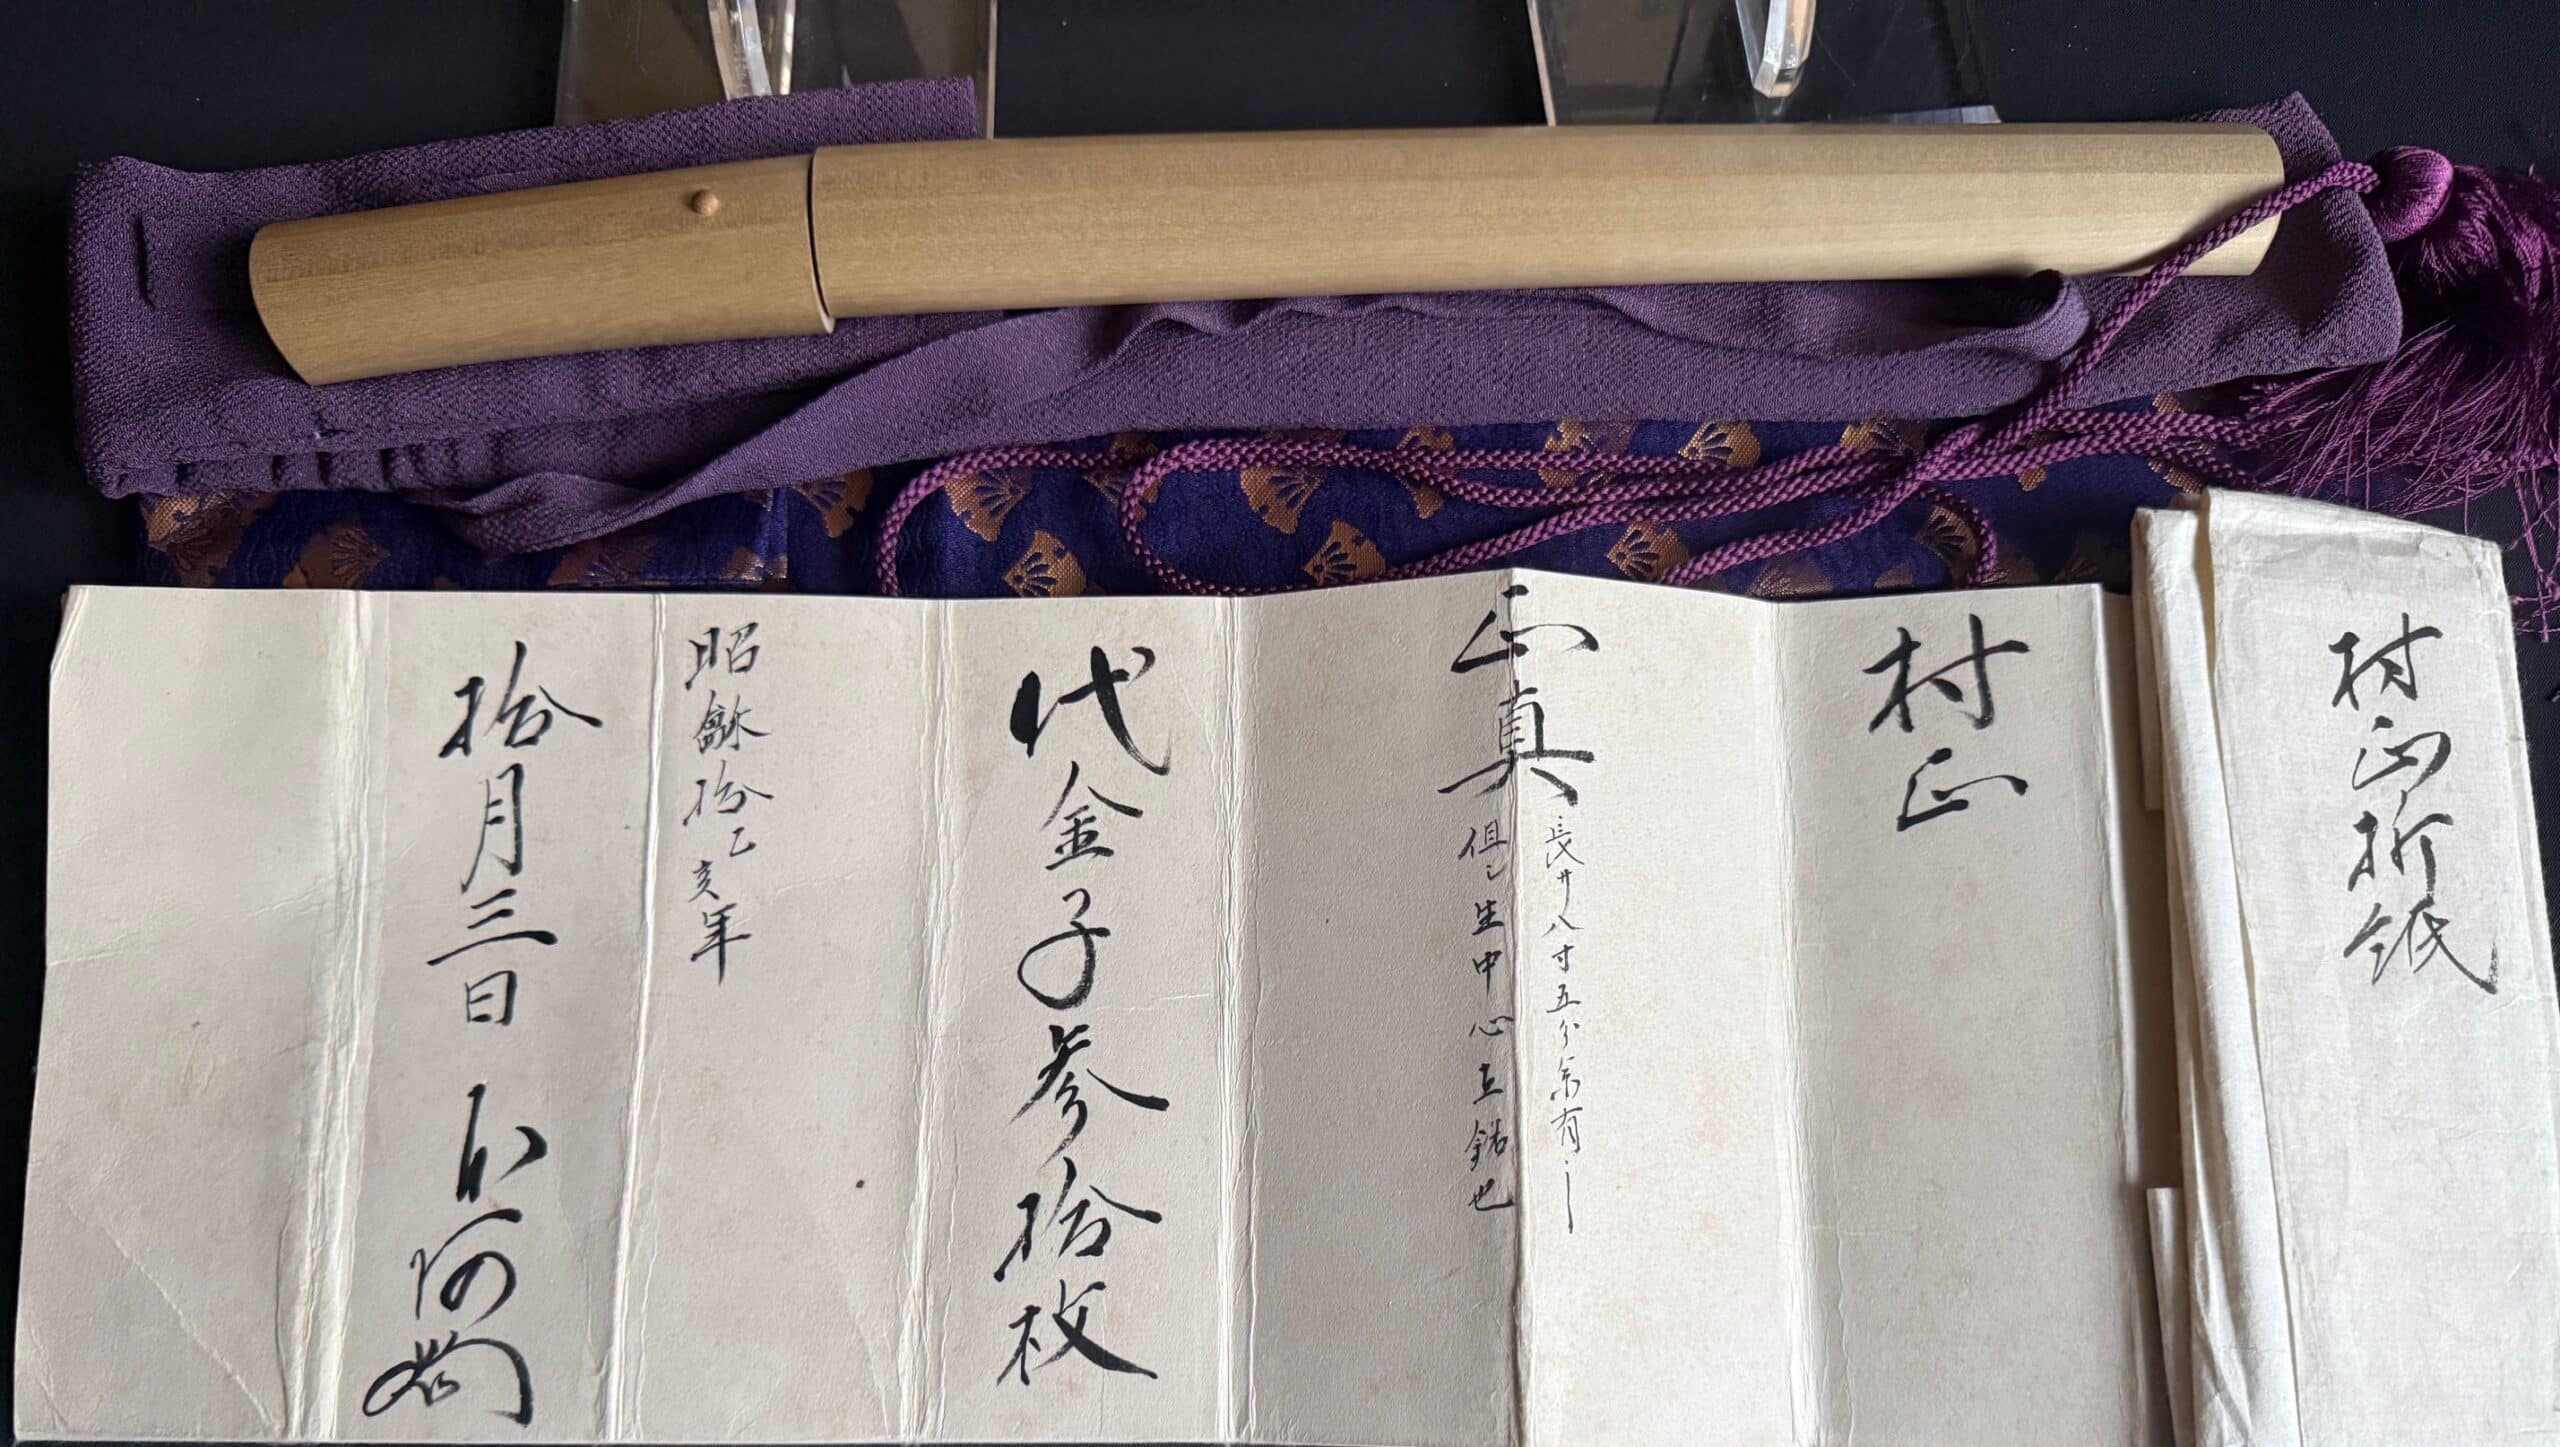 村正折紙
村正
正真
長サ八寸五分余有之
但シ生中心立銘也
代金子参拾枚
昭龢拾乙亥年
拾月三日 本阿